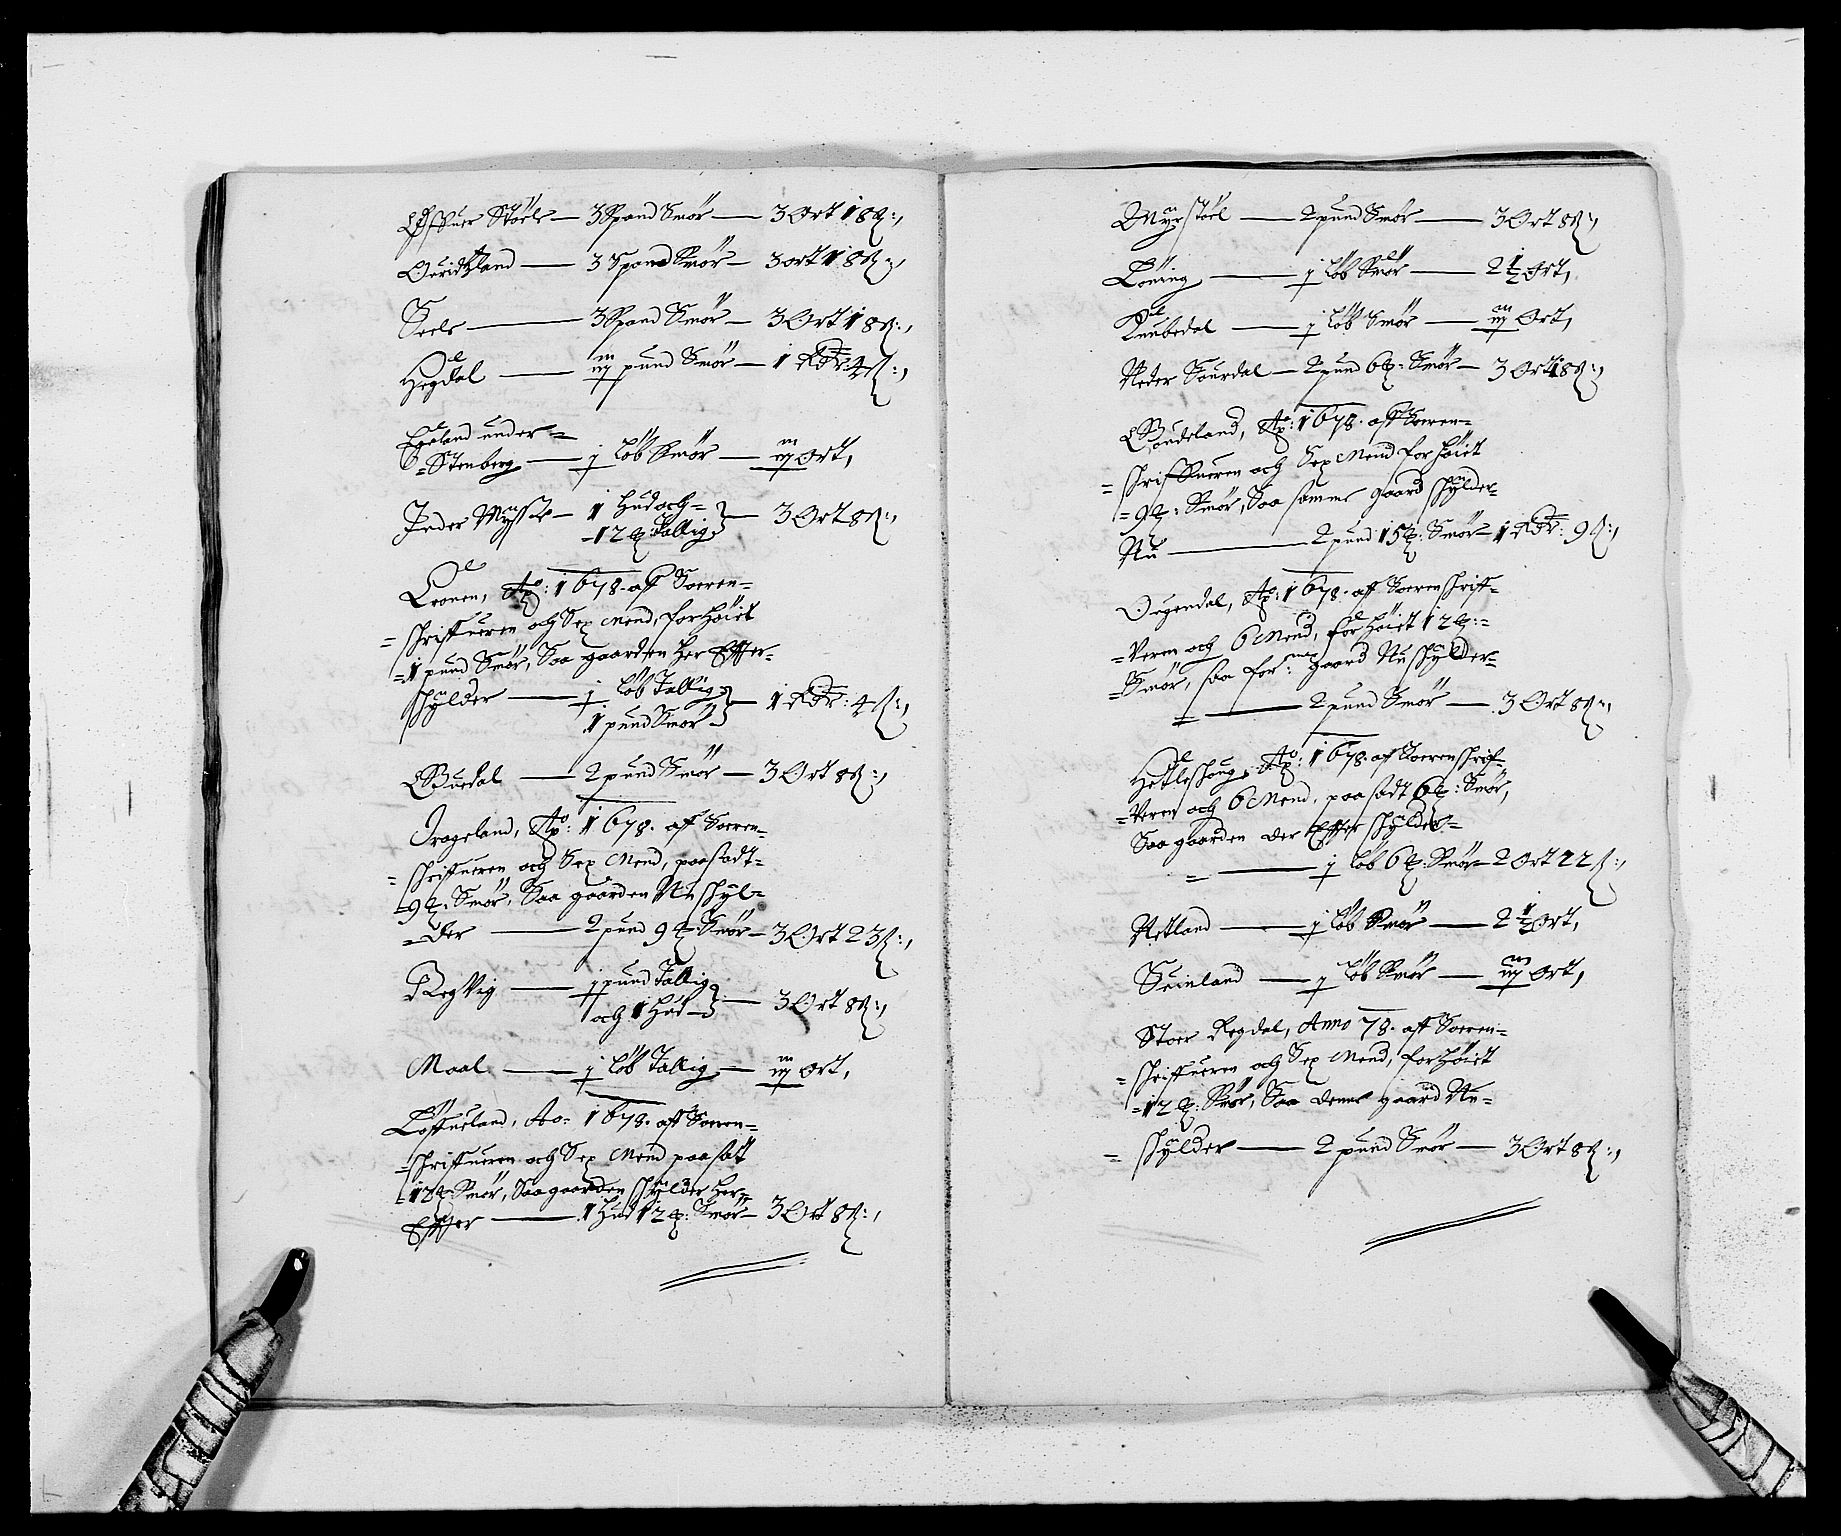 Øffuer Støele — 3 Spand Smør — 3 Ort 18 ß:,
Øuridtzland — 3 Spand Smør — 3 ort 18 ß:,
Seele — 3 Spand Smør — 3 Ort 18 ß:,
Hegdal — pund Smør — 1 Rdr: 4 ß:,
Egeland under=
=Stenberg — j Løb Smør — Ort,
Jnder Myssel — 1 Hud och=
-12 Tallig — 3 Ort 8 ß:,
Leonen, Ao: 1678. aff Soeren=
=schriffueren och Sex Mend, forhøiet
=1 pund Smør, Saa gaarden her Effter=
schylder — j Løb Tallig
1 pund Smør — 1 Rdr: 4 ß:,
Buedal — 2 pund Smør — 3 Ort 8 ß:,
Drageland, Ao: 1678. aff Soeren=
=schriffueren och Sex Mend, paasadt=
=9 : Smør, Saa gaarden Nu schyl=
=der — 2 pund 9 Smør — 3 Ort 23 ß:,
Regevig — j pund Tallig
och 1 Hud — 3 Ort 8 ß:,
Moal — j Løb Tallig — Ort,
Løffueland, Ao: 1678. aff Soeren=
=schriffueren och Sex Mend paasatt
=12 Smør, Saa gaarden schylder her=
Effter — 1 Hud 12 : Smør — 3 Ort 8 ß:,
Myrstøel — 2 pund Smør — 3 Ort 8 ß:,
Løning — j Løb Smør — 2 1/2 Ort,
Knubedal — j Løb Smør — Ort,
Neder Sourdal — 2 pund 6 : Smør — 3 Ort 18 ß:,
Boudeland, Ao: 1678. aff Soeren=
=schriffueren och Sex Mend forhøiet
=9 : Smør, Saa samme gaard schylder=
Nu — 2 pund 15 : Smør — 1 Rdr: 9 ß:,
Øugendal, Ao: 1678. aff Soerenschriff=
=veren och 6 Mend, forhøiet 12 :=
=Smør, saa for: gaard Nu schylder=
= — 2 pund Smør — 3 Ort 8 ß:,
Hetleshoug, Ao: 1678. aff Soerenschrif=
=veren och 6 Mend, paasadt 6 : Smør,
Saa gaarden der Effter schylder=
= — j Løb 6 : Smør — 2 Ort 22 ß:,
Netland — j Løb Smør — 2 1/2 Ort,
Suinland — j Løb Smør — Ort,
Stoer Regdal, Anno 78. aff Soeren=
=schriffueren och Sex Mend, forhøiet
=12 : Smør, Saa denne gaard Nu=
= schylder — 2 pund Smør — 3 Ort 8 ß:,